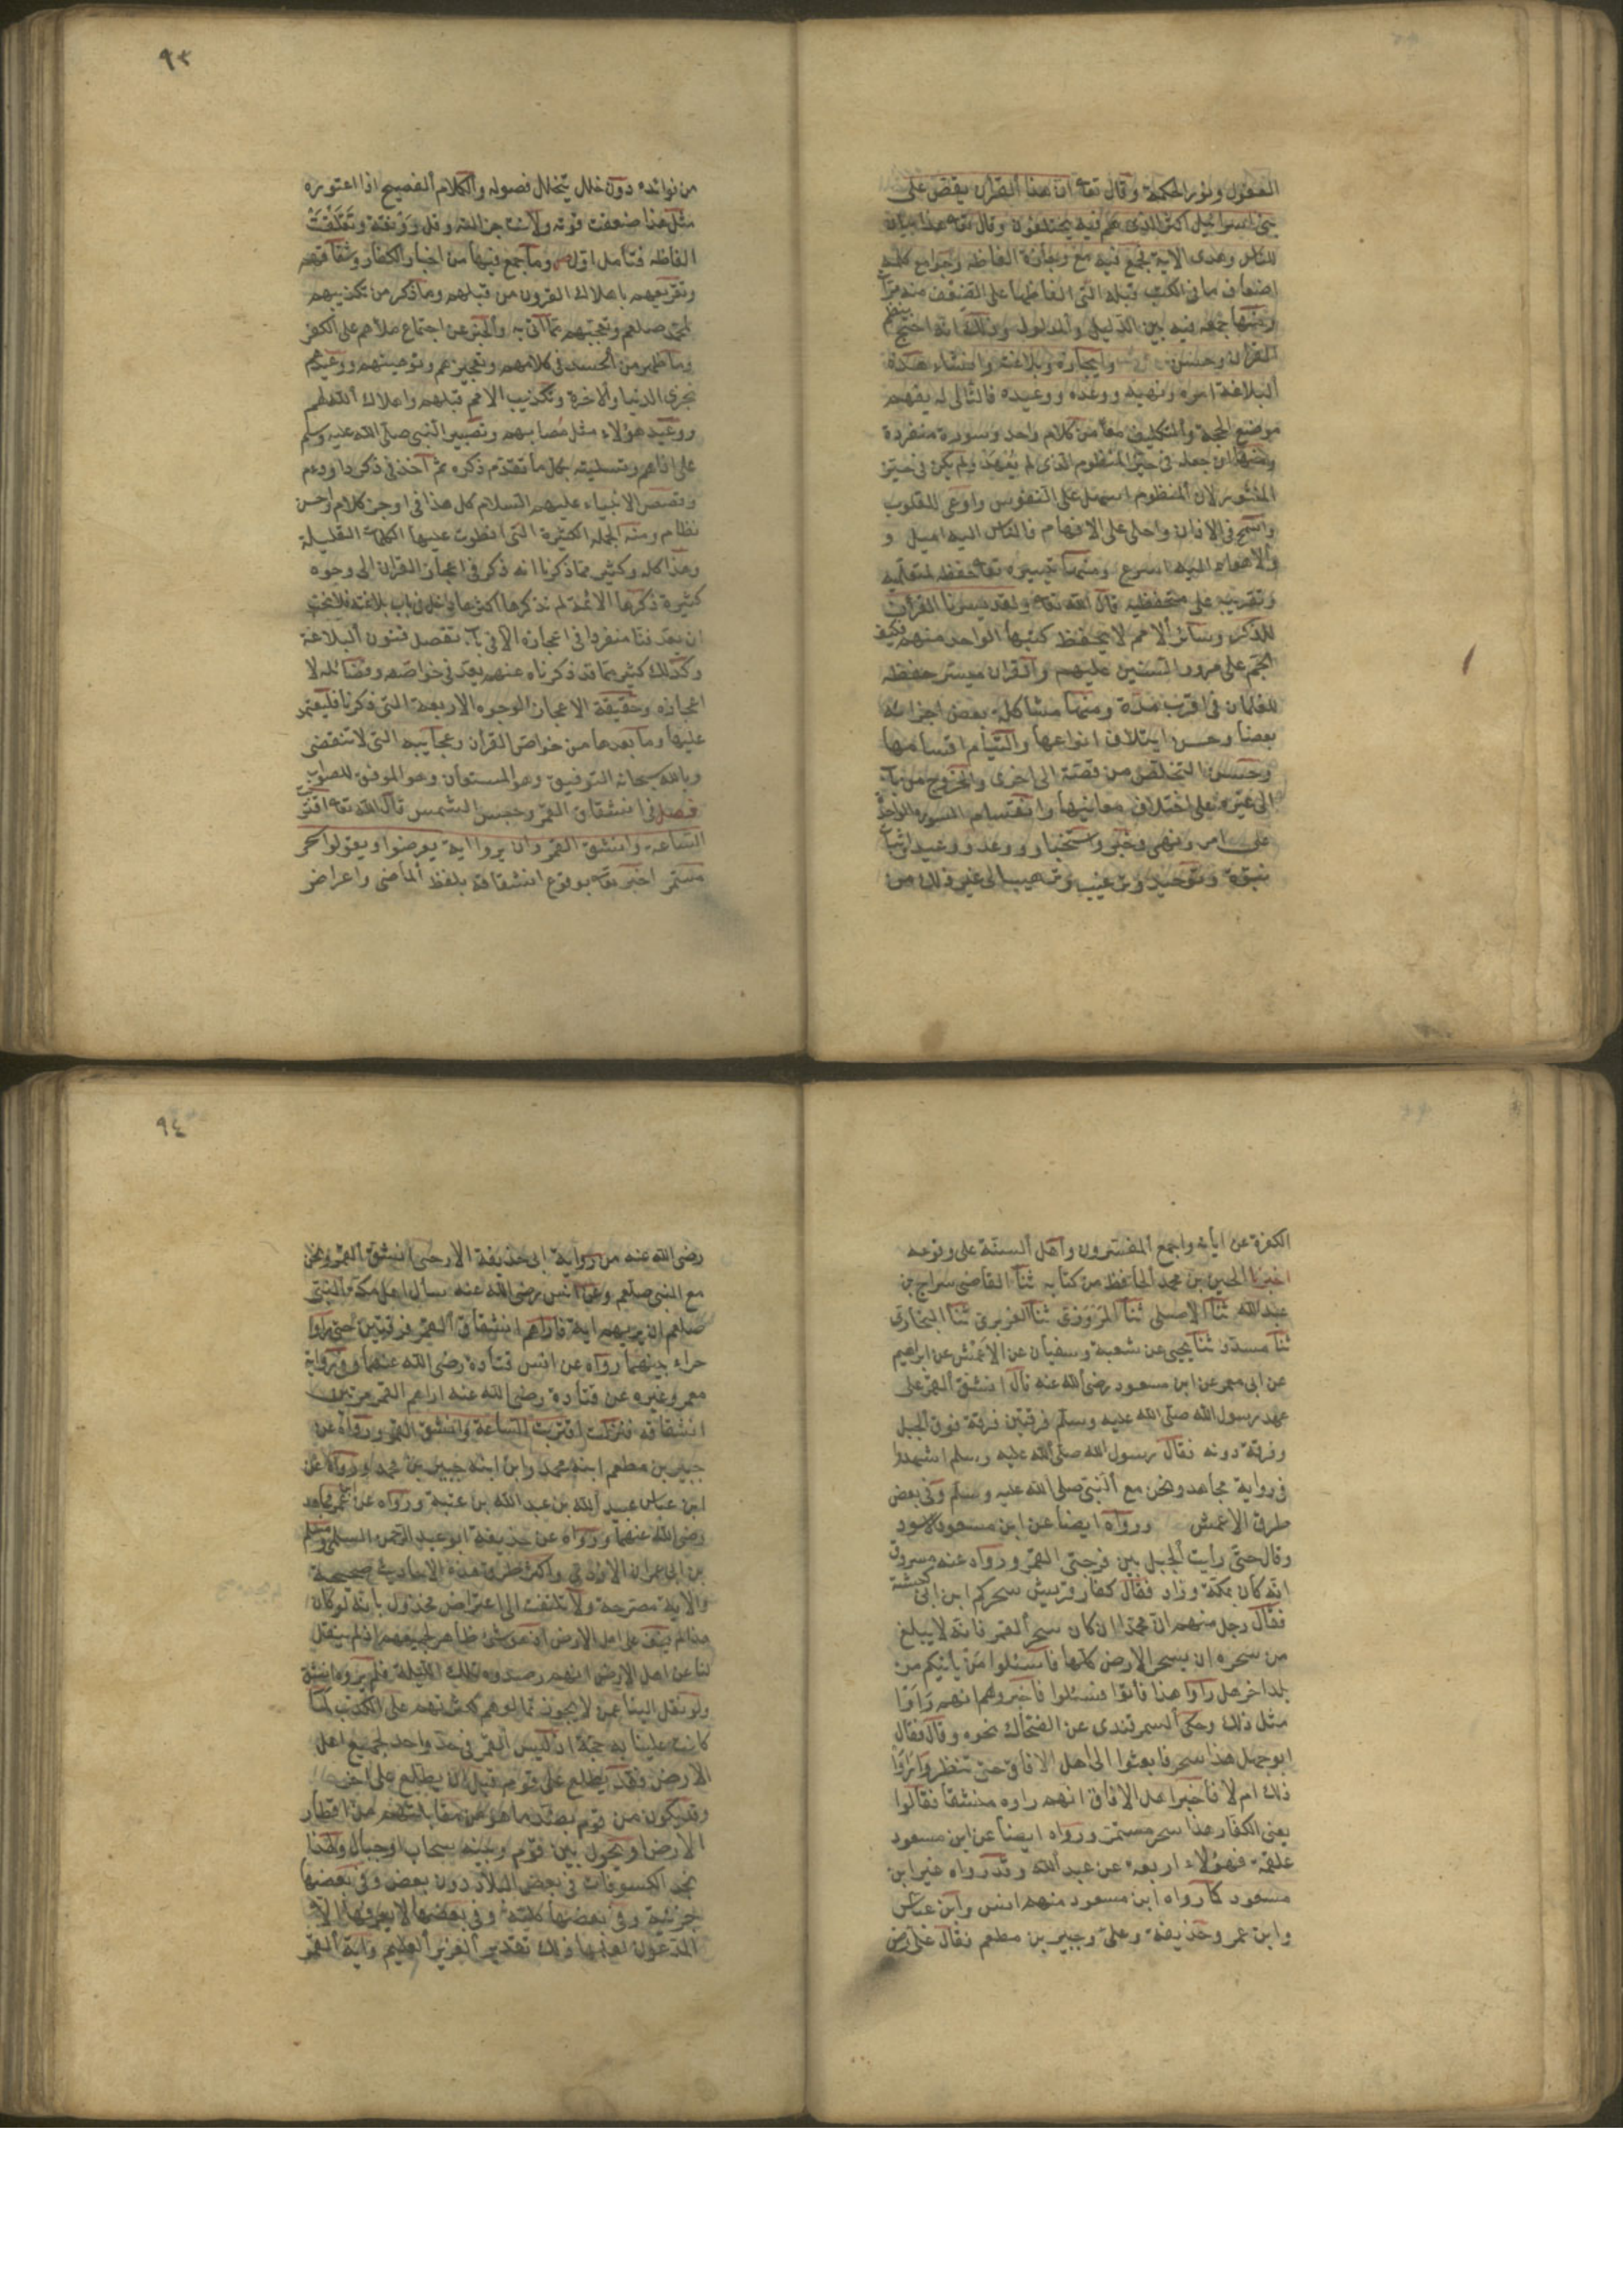 العقول ونور الحكمة وقال تعا ان هذا القرآن يقص على
بنى اسرائيل اكثر الذى هم فيه يختلفون وقال تعا هذا بيان
للناس وهدى الاية فجمع فيه مع وجازة الفاظه وجوامع كلمه
اضعاف ما فى الكتب قبله التى الفاظها على الضعف منه مرّات
ومنها جمعه فيه بين الدليل والمدلول وذلك انه احتج بنظم
القرآن وحسن وايجازه وبلاغته واثناء هذه
البلاغة امره ونهيه ووعده ووعيده فالتالى له يفهم
موضع الحجة والتكليف معا من كلام واحد وسورة منفردة
ومنها ان جعله فى حيز المنظوم الذى لم يُعهد ولم يكن فى حيز
المنثور لان المنظوم اسهل على النفوس واوعى للقلوب
واسمح فى الاذان واحلى على الافهام فالناس اليه اميل و
والاهواء اليه اسرع ومنها تيسيره تعا حفظه لمتعلميه
وتقريبه على متحفظيه قال الله تعا ولقد يسرنا القرآن
للذكر وسائر الامم لا يحفظ كتبها الواحد منهم فكيف
الجم على مرور السنين عليهم والقرآن ميسر حفظه
للغلمان فى اقرب مدة ومنها مشاكلة بعض اجزائه
بعضا وحسن ايتلاف انواعها والتيام اقسامها
وحسن التخلص من قصة الى اخرى والخروج من باب
الى غيره على اختلاف معانيها وانقسام السورة الواحدة
على امر ونهى وخبر واستخبار ووعد ووعيد واثبات
نبوة وتوحيد وترغيب وترهيب الى غير ذلك من
٩٣
من فوائده دون خلل يتخلل فصوله والكلام الفصيح اذا اعتوره
مثل هذا ضعفت قوته ولانت جزالته وقل رونقه وتقلقت
الفاظه فتأمل اول وما جمع فيها من اخبار الكفار وشقاقهم
وتقريعهم باهلاك القرون من قبلهم وما ذكر من تكذيبهم
لمحمد صلعم وتعجبهم مما اتى به والخبر عن اجتماع ملأهم على الكفر
وما ظهر من الحسد فى كلامهم وتعجيزهم وتوهينهم ووعيدهم
بخزى الدنيا والاخرة وتكذيب الامم قبلهم واهلاك الله لهم
ووعيد هؤلاء مثل مصابهم وتصبير النبى صلى الله عليه وسلم
على اذاهم وتسليته بكل ما تقدّم ذكره ثم اخذ فى ذكر داود عم
وقصص الانبياء عليهم السلام كل هذا فى اوجز كلام واحسن
نظام ومنه الجملة الكثيرة التى انطوت عليها الكلمات القليلة
وهذا كله وكثير مما ذكرنا انه ذكر فى اعجاز القرآن الى وجوه
كثيرة ذكرها الائمة لم نذكرها اكثرها داخل فى باب بلاغته فلا يجب
ان يعد فنا منفردا فى اعجازه الا فى باب تفصيل فنون البلاغة
وكذلك كثير مما قد ذكرناه عنهم يعد فى خواصه وفضائله لا
اعجازه وحقيقة الاعجاز الوجوه الاربعة التى ذكرنا فليعتمد
عليها وما بعدها من خواص القرآن وعجايبه التى لا تنقضى
وبالله سبحانه التوفيق وهو المستعان وهو الموفق للصواب
فصل فى انشقاق القمر وحبس الشمس قال الله تعا اقتربت
الساعة وانشق القمر وان يروا اية يعرضوا ويقولوا سحر
مستمر اخبر تعا بوقوع انشقاقه بلفظ الماضى واعراض
الكفرة عن اياته واجمع المفسرون واهل السنة على وقوعه
اخبرنا الحسين بن محمد الحافظ من كتابه ثنا القاضى سراج بن
عبد الله ثنا الاصيلى ثنا المروزى ثنا الفربرى ثنا البخارى
ثنا مسدد ثنا يحيى عن شعبة وسفيان عن الاعمش عن ابراهيم
عن ابى معمر عن ابن مسعود رضى الله عنه قال انشق القمر على
عهد رسول الله صلى الله عليه وسلم فرقتين فرقة فوق الجبل
وفرقة دونه فقال رسول الله صلى الله عليه وسلم اشهدوا
فى رواية مجاهد ونحن مع النبى صلى الله عليه وسلم وفى بعض
طرق الاعمش ورواه ايضا عن ابن مسعود الاسود
وقال حتى رأيت الجبل بين فرجتى القمر ورواه عنه مسروق
انه كان بمكة وزاد فقال كفار قريش سحركم ابن ابى كبشة
فقال رجل منهم ان محمدا ان كان سحر القمر فانه لا يبلغ
من سحره ان يسحر الارض كلها فاسئلوا من يأتيكم من
بلد اخر هل رأوا هذا فأتوا فسئلوا فاخبروهم انهم رأوا
مثل ذلك وحكى السمرقندى عن الضحاك نحوه وقال فقال
ابو جهل هذا سحر فابعثوا الى اهل الافاق حتى تنظروا أرأوا
ذلك ام لا فاخبر اهل الافاق انهم راوه منشقا فقالوا
يعنى الكفار هذا سحر مستمر ورواه ايضا عن ابن مسعود
علقمة فهؤلاء اربعة عن عبد الله وقد رواه غير ابن
مسعود كما رواه ابن مسعود منهم انس وابن عباس
وابن عمر وحذيفة وعلى وجبير بن مطعم فقال على رض
٩٤
رضى الله عنه من رواية ابى حذيفة الارحبى انشق القمر ونحن
مع النبى صلعم وعن انس رضى الله عنه سأل اهل مكة النبى
صلعم ان يريهم اية فاراهم انشقاق القمر فرقتين حتى راوا
حراء بينهما رواه عن انس قتادة رضى الله عنهما وفى رواية
معمر وغيره عن قتادة رضى الله عنه اراهم القمر مرتين
انشقاقه فنزلت اقتربت الساعة وانشق القمر ورواه عن
جبير بن مطعم ابنه محمد وابن ابنه جبير بن محمد ورواه عن
ابن عباس عبيد الله بن عبد الله بن عتبة ورواه عن ابن عمر مجاهد
رضى الله عنهما ورواه عن حذيفة ابو عبد الرحمن السلمى ومسلم
بن ابى عمران الازدى واكثر طرق هذه الاحاديث صحيحة
والاية مصرحة ولا يلتفت الى اعتراض مخذول بانه لو كان
هذا لم يخف على اهل الارض اذ هو شئ ظاهر لجميعهم اذ لم ينقل
لنا عن اهل الارض انهم رصدوه تلك الليلة فلم يروه انشق
ولو نقل الينا عمن لا يجوز تمالؤهم لكثرتهم على الكذب لما
كانت علينا به حجة اذ ليس القمر فى حد واحد لجميع اهل
الارض فقد يطلع على قوم قبل ان يطلع على اخرين
وقد يكون من قوم بضد ما هو من مقابلتهم من اقطار
الارض او يحول بين قوم وبينه سحاب او جبال ولهذا
نجد الكسوفات فى بعض البلاد دون بعض وفى بعضها
جزئية وفى بعضها كلية وفى بعضها لا يعرفها الا
المدعون لعلمها ذلك تقدير العزيز العليم واية القمر